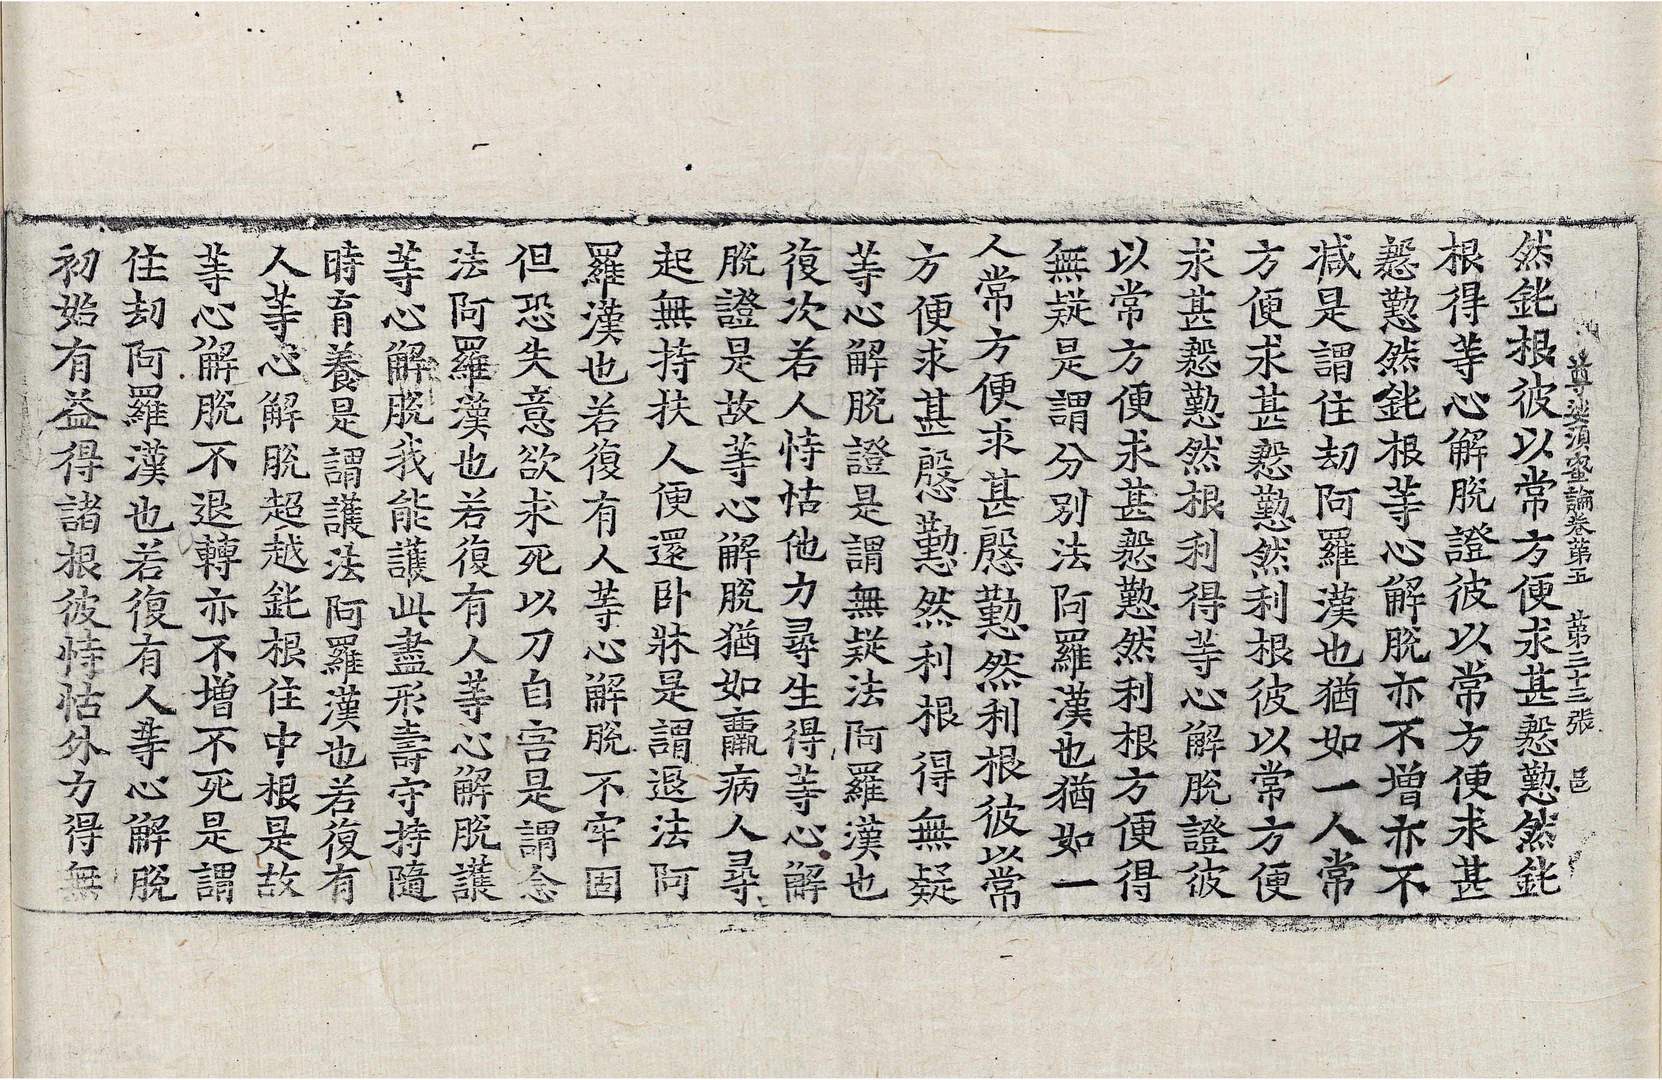 尊婆須蜜論卷第五 第三十三張 邑
然鈍根彼以常方便求甚慇懃然鈍
根得等心解脫證彼以常方便求甚
慇懃然鈍根等心解脫亦不增亦不
減是謂住劫阿羅漢也猶如一人常
方便求甚慇懃然利根彼以常方便
求甚慇懃然根利得等心解脫證彼
以常方便求甚慇懃然利根方便得
無疑是謂分別法阿羅漢也猶如一
人常方便求甚慇懃然利根彼以常
方便求甚慇懃然利根得無疑
等心解脫證是謂無疑法阿羅漢也
復次若人恃怙他力尋生得等心解
脫證是故等心解脫猶如羸病人尋
起無持扶人便還卧牀是謂退法阿
羅漢也若復有人等心解脫不牢固
但恐失意欲求死以刀自害是謂念
法阿羅漢也若復有人等心解脫護
等心解脫我能護此盡形壽守持隨
時育養是謂護法阿羅漢也若復有
人等心解脫超越鈍根住中根是故
等心解脫不退轉亦不增不死是謂
住劫阿羅漢也若復有人等心解脫
初始有益得諸根彼恃怙外力得無